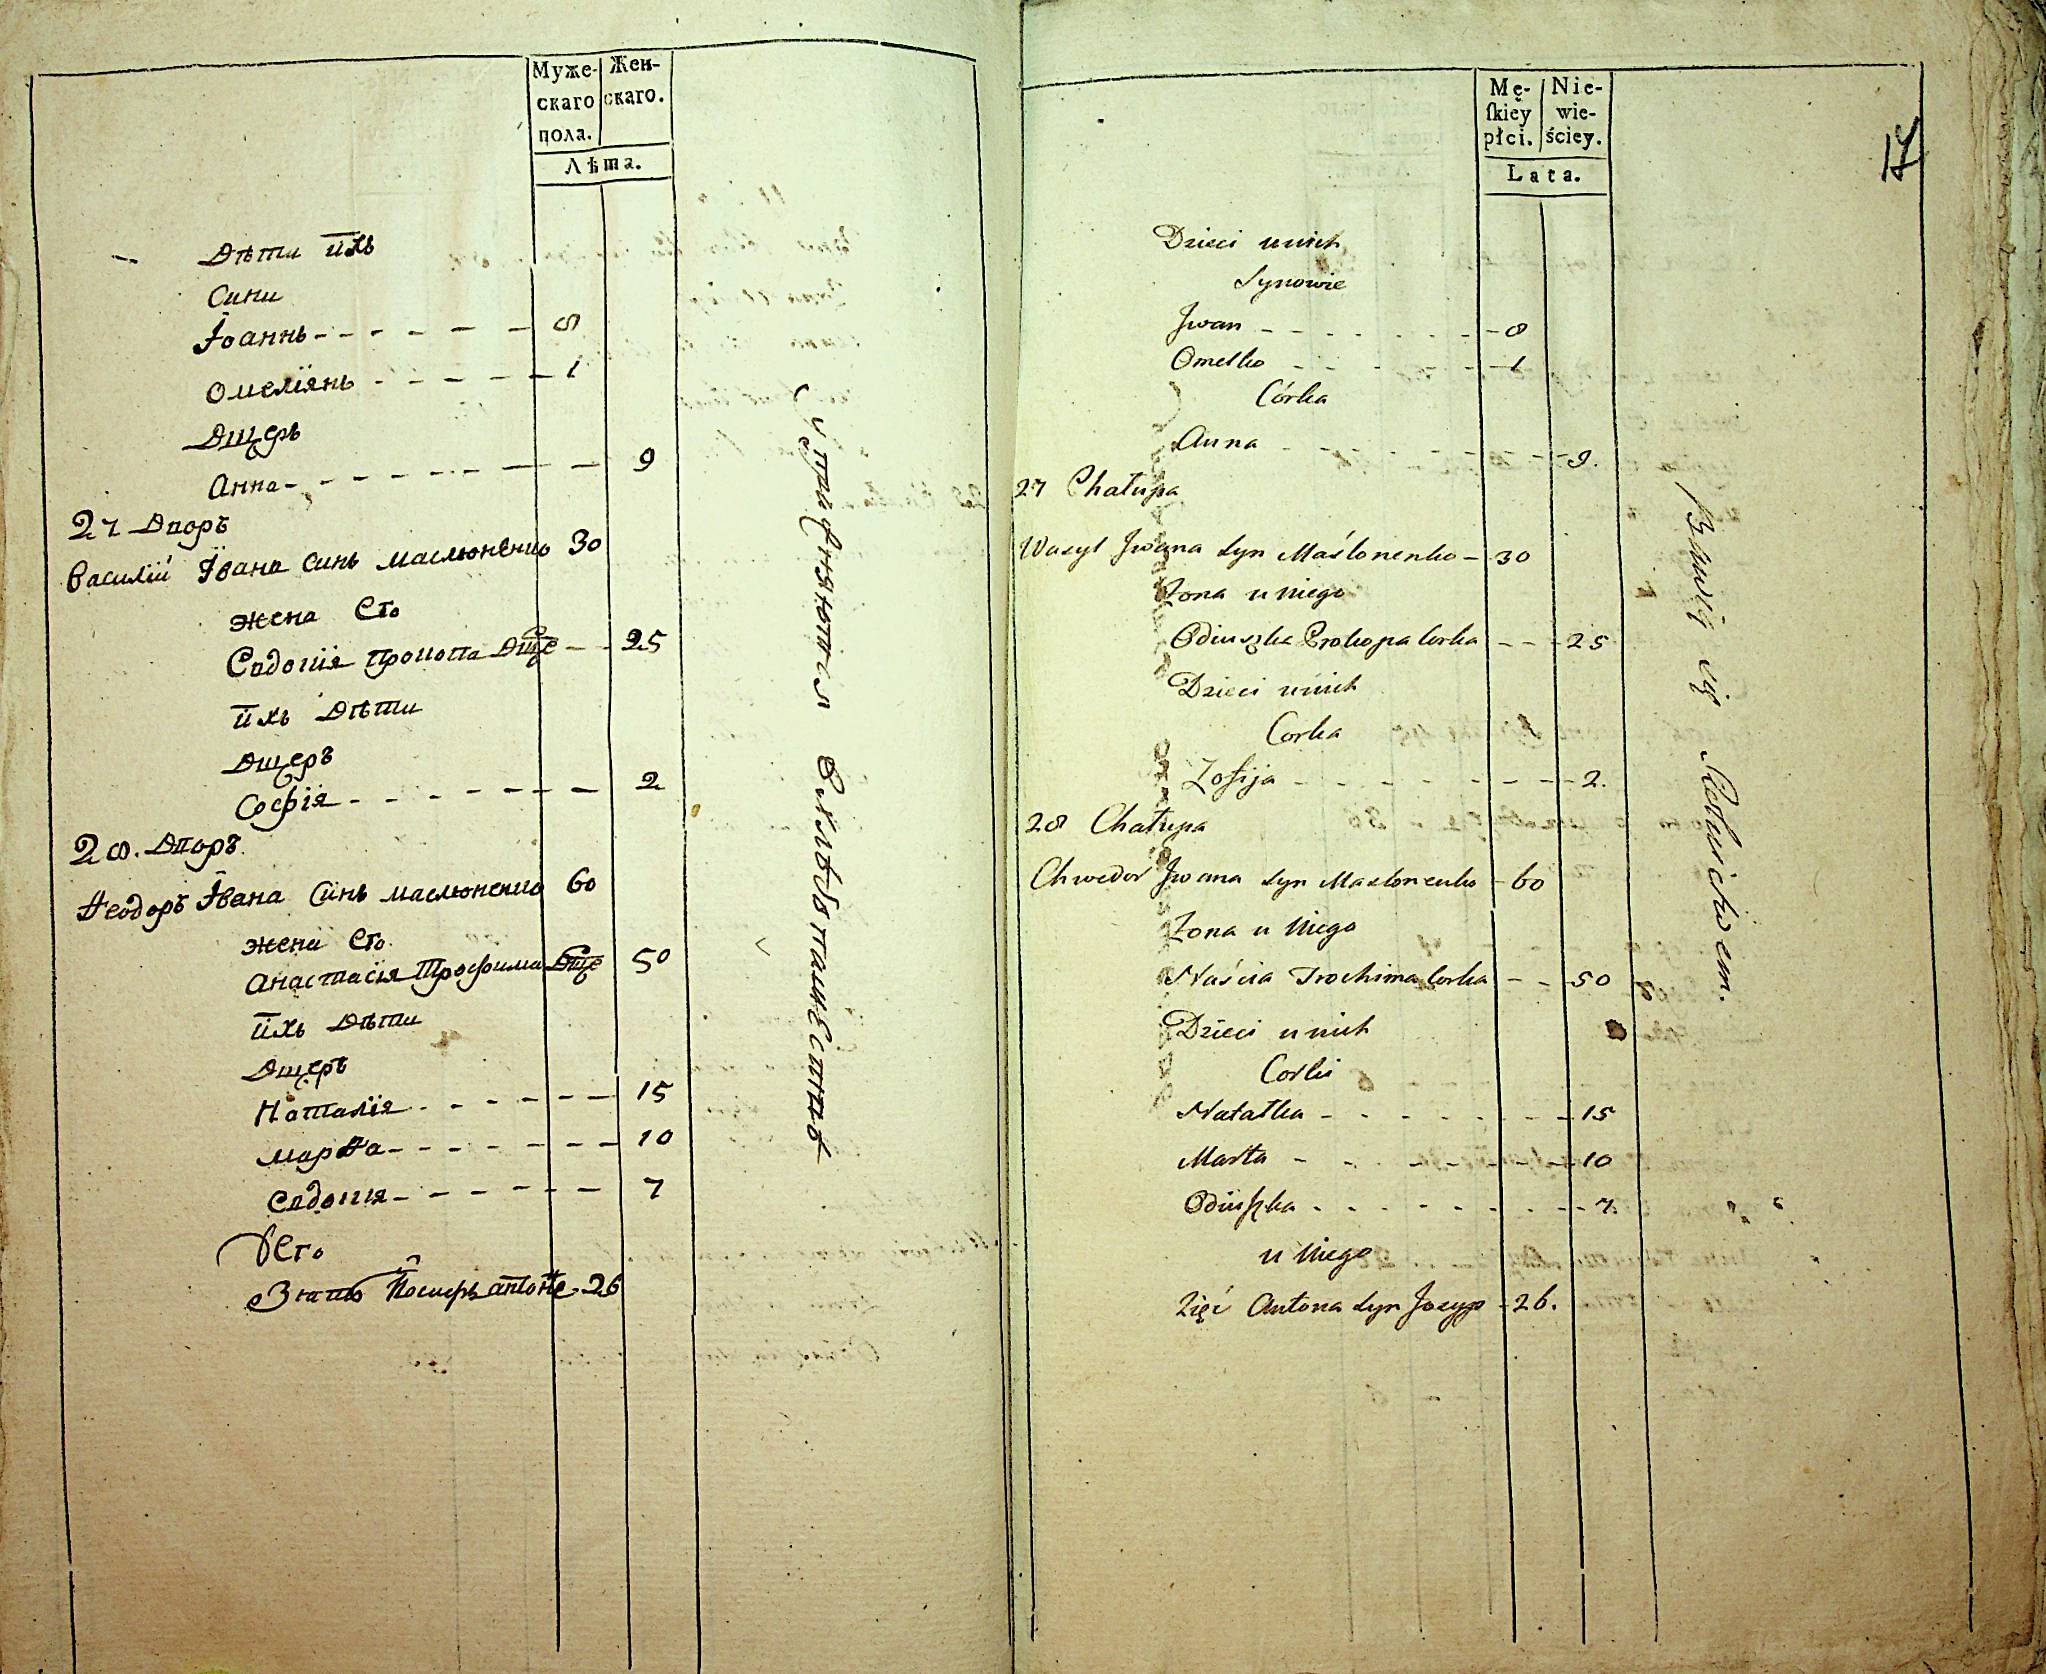 Муже-
скаго
пола.
Жен-
скаго.
Лѣта.
Дѣти ихъ
Сини
Іоаннъ - - - - - - 8
Омеліянъ - - - - - 1
Дщерь
Анна - - - - - - - 9
27 Дворъ
Василій Івана синъ Маслюненко 30
жена Его
Евдокія Прокопа Дще - - 25
ихъ Дѣти
Дщеръ
Софія - - - - - - - 2
28. Дворъ
Ѳеодоръ Івана Синъ маслюненко 60
жена Его
Анастасія Трофима Дще 50
ихъ Дѣти
Дщеръ
Наталія - - - - - - 15
марѳа - - - - - - - 10
Евдокія - - - - - - 7
УЕго
Зять Іосифъ 26
Упражняются Хлѣбопашествомъ
Mę-
ſkiey
płci.
Nie-
wie-
ściey.
Lata.
17
Dzieci u nich
Synowie
Jwan - - - - - - - 8
Omelko - - - - - - 1
Córka
Anna - - - - - - - - 9.
27 Chałupa
Wasyl Jwana Syn Maślonenko - 30
Zona u Niego
Odiuszka Prokopa Corka - - - 25
Dzieci u nich
Corka
Zofija - - - - - - - - 2.
28 Chałupa
Chwedor Jwana Syn Maslonenko - 60
Zona u Niego
Naścia Trochima Corka - - - 50
Dzieci u nich
Corki
Natałka - - - - - - - 15
Marta - - - - - - - 10
Odiuſzka - - - - - - - - 7.
u Niego
Zięć Antona Syn Josyp - 26.
Bawią się Rolnictwem.